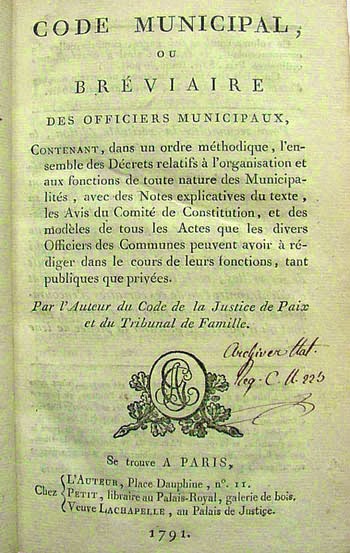 CODE MUNICIPAL,
OU
BRÉVIAIRE
DES OFFICIERS MUNICIPAUX,
CONTENANT, dans un ordre méthodique, l'en-
semble des Décrets relatifs à l'organisation et
aux fonctions de toute nature des Municipa-
lités, avec des Notes explicatives du texte,
les Avis du Comité de Constitution, et des
modèles de tous les Actes que les divers
Officiers des Communes peuvent avoir à ré-
diger dans le cours de leurs fonctions, tant
publiques que privées.
Par l'Auteur du Code de la Justice de Paix
et du Tribunal de Famille.
Se trouve A PARIS,
Chez
L'AUTEUR, Place Dauphine, nº. 11.
PETIT, libraire au Palais-Royal, galerie de bois.
Veuve LACHAPELLE, au Palais de Justice.
1791.